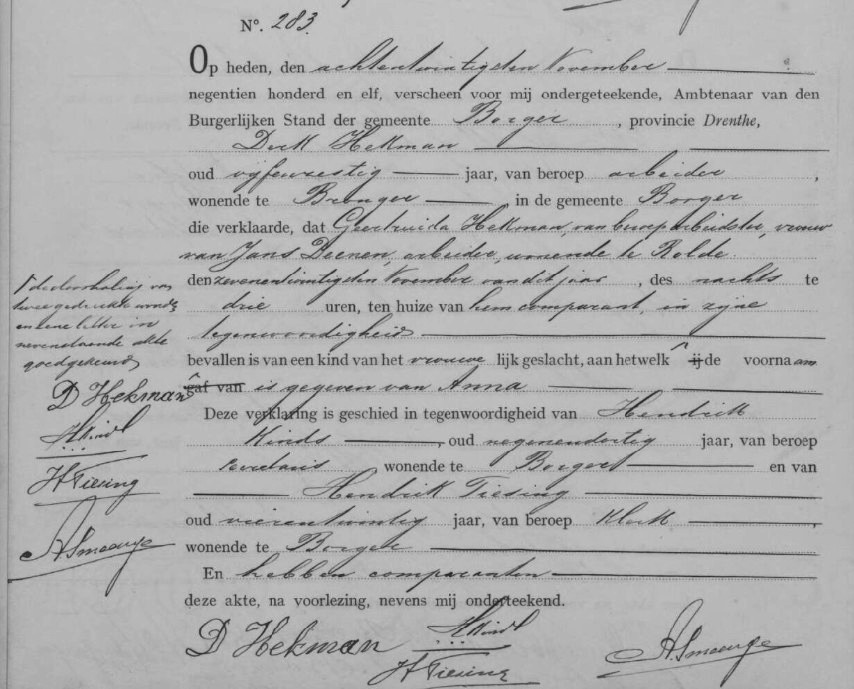 Nº. 283.
Op heden, den achtentwintigsten November
negentien honderd en elf, verscheen voor mij ondergeteekende, Ambtenaar van den
Burgerlijken Stand der gemeente Borger, provincie Drenthe,
Derk Hekman
oud vijfenzestig jaar, van beroep arbeider,
wonende te Bronger, in de gemeente Borger
die verklaarde, dat Geertruida Hekman, van beroep arbeidster, vrouw
van Jans Deenen, arbeider, wonende te Rolde
den zevenentwintigsten November van dit jaar, des nachts te
drie uren, ten huize van hem comparant, in zijne
tegenwoordigheid
bevallen is van een kind van het vrouwelijk geslacht, aan hetwelk ij de voornaam
gaf van is gegeven van Anna
Deze verklaring is geschied in tegenwoordigheid van Hendrik
Kinds, oud negenendertig jaar, van beroep
secretaris wonende te Borger en van
Hendrik Tiesing
oud vierentwintig jaar, van beroep klerk,
wonende te Borger
En hebben comparanten
deze akte, na voorlezing, nevens mij onderteekend.
D Hekman
HKinds
HTiesing
ASmeenge
de doorhaling van
twee gedrukte woorden
en eene letter in
nevenstaande akte
goedgekeurd
D Hekman
HKinds
HTiesing
ASmeenge